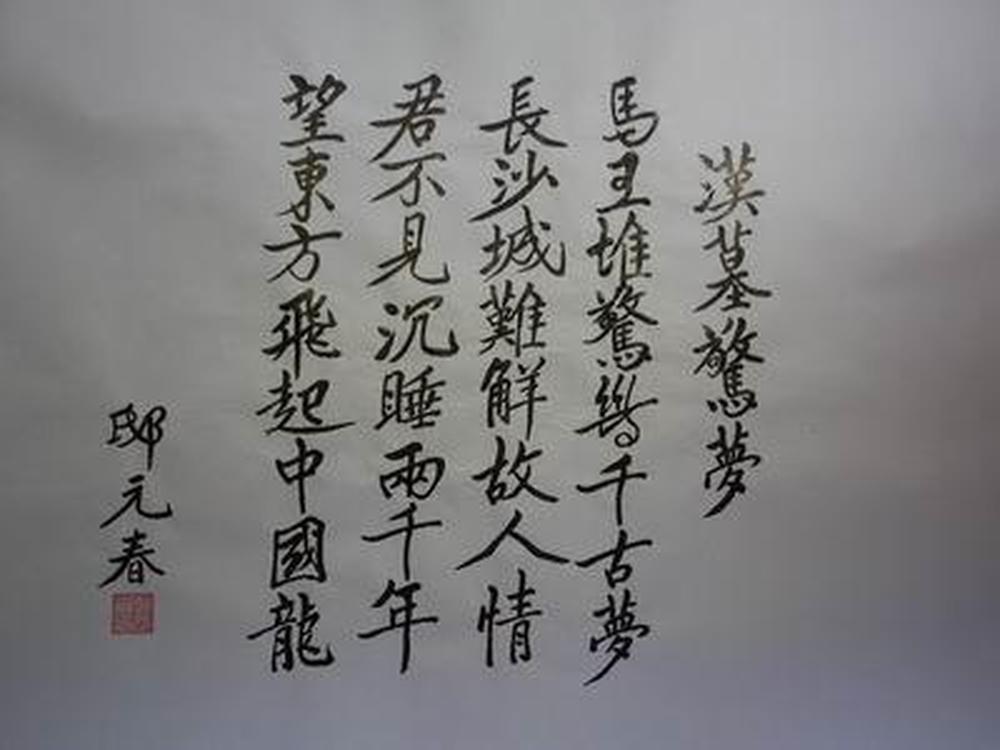 漢墓驚夢
馬王堆驚響千古夢
長沙城難解故人情
君不見沉睡兩千年
望東方飛起中國龍
邸元春